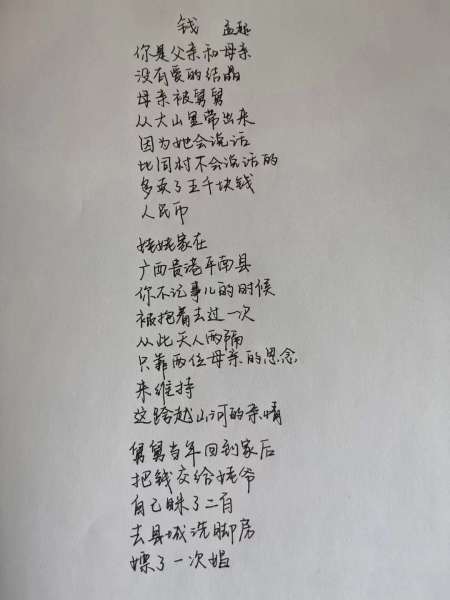 钱 孟起
你是父亲和母亲
没有爱的结晶
母亲被舅舅
从大山里带出来
因为她会说话
比同村不会说话的
多卖了五千块钱
人民币
姥姥家在
广西贵港平南县
你不记事儿的时候
被抱着去过一次
从此天人两隔
只靠两位母亲的思念
来维持
这跨越山河的亲情
舅舅当年回到家后
把钱交给姥爷
自己昧了二百
去县城洗脚房
嫖了一次娼